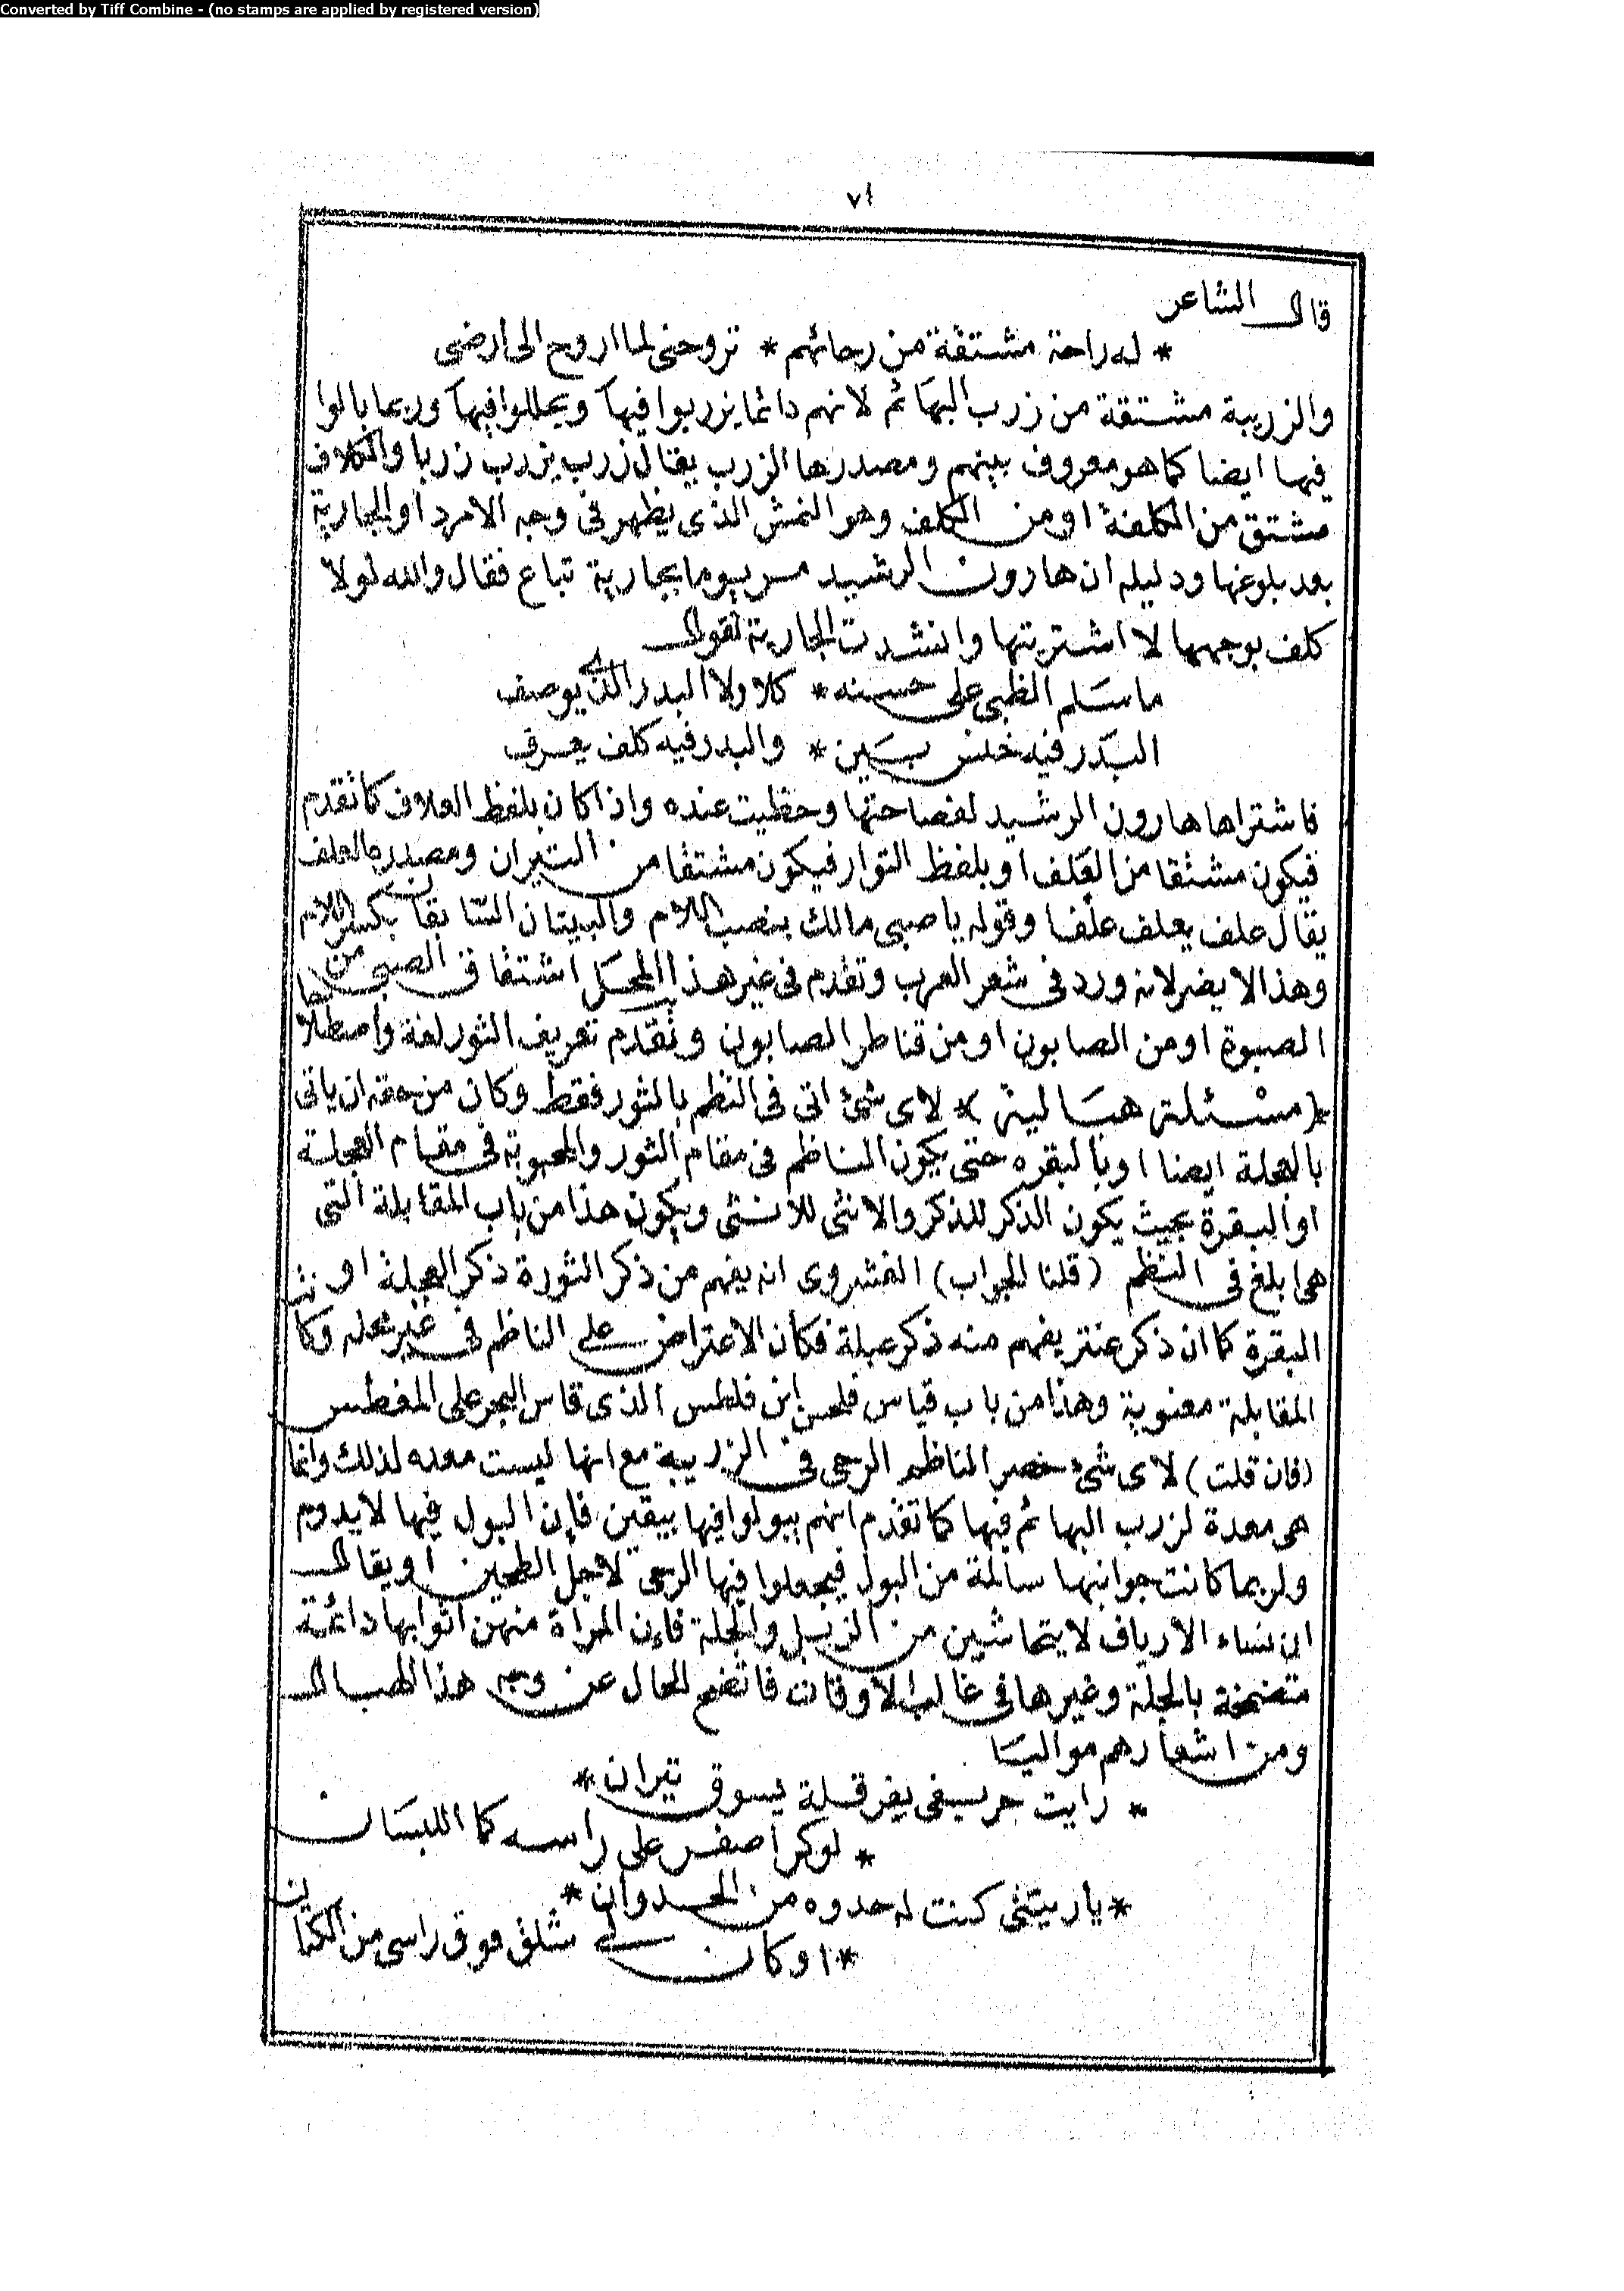 Converted by Tiff Combine - (no stamps are applied by registered version)
٧٤
قال الشاعر
* له راحة مشتقة من رحائهم * تروحنى لما اروح الى ارضى
والزريبة مشتقة من زرب البهائم لانهم دائما يزربوا فيها ويحللوا فيها وربما بالوا
فيها ايضا كما هو معروف بينهم ومصدرها الزرب يقال زرب يزرب زربا والكلاف
مشتق من الكلفة او من الكلف وهو النمش الذى يظهر فى وجه الامرد او الجارية
بعد بلوغها ودليله ان هارون الرشيد مر يوما بجارية تباع فقال والله لولا
كلف بوجهها لا اشتريتها وانشدت الجارية تقول
ما سلم الظبى على حسنه * كلا ولا البدر الذى يوصف
البدر فيه خنس بين * والبدر فيه كلف يعرف
فاشتراها هارون الرشيد لفصاحتها وحظيت عنده واذا كان بلفظ العلاف كما تقدم
فيكون مشتقا من العلف او بلفظ التوار فيكون مشتقا من التيران ومصدره العلف
يقال علف يعلف علفا وقوله يا صبى مالك بنصب اللام والبيتان السابقان بكسر اللام
وهذا لا يضر لانه ورد فى شعر العرب وتقدم فى غير هذا المحل اشتقاق الصبى من
الصبوة او من الصابون او من قناطر الصابون وتقدم تعريف الثور لغة واصطلاحا
*(مسئلة هبالية)* لاى شئ اتى فى النظم بالثور فقط وكان من حقه ان ياتى
بالعجلة ايضا او بالبقره حتى يكون الناظم فى مقام الثور والمحبوبة فى مقام العجلة
او البقرة بحيث يكون الذكر للذكر والانثى للانثى ويكون هذا من باب المقابلة التى
هى ابلغ فى النظم (قلنا الجواب) الفشروى انه يفهم من ذكر الثورة ذكر العجلة او
البقرة كما ان ذكر عنتر يفهم منه ذكر عبلة فكان الاعتراض على الناظم فى غير محله وكانت
المقابلة معنوية وهذا من باب قياس فلحس ابن فلطس الذى قاس البحر على المغطس
(فان قلت) لاى شئ حصر الناظم الرحى فى الزريبة مع انها ليست معده لذلك وانما
هى معدة لزرب البهائم فيها كما تقدم انهم يبولوا فيها بيقين فإن البول فيها لا يدوم
ولربما كانت جوانبها سالمة من البول فيجعلوا فيها الرحى لاجل الطحين او يقال
ان نساء الارياف لا يتحاشين من الزبل والجلة فان المراة منهن اثوابها دائمة
متضمخة بالجلة وغيرها فى غالب الاوقات فاتضح الحال عن وجه هذا الهبال
ومن اشعارهم مواليا
* رايت حريفى بفرقلة يسوق تيران *
* لو كر اصفر على راسه كما اللبسان
* يا ريتنى كنت له حدوه من الحدوان *
* او كان لى شلق فوق راسى من الكتان